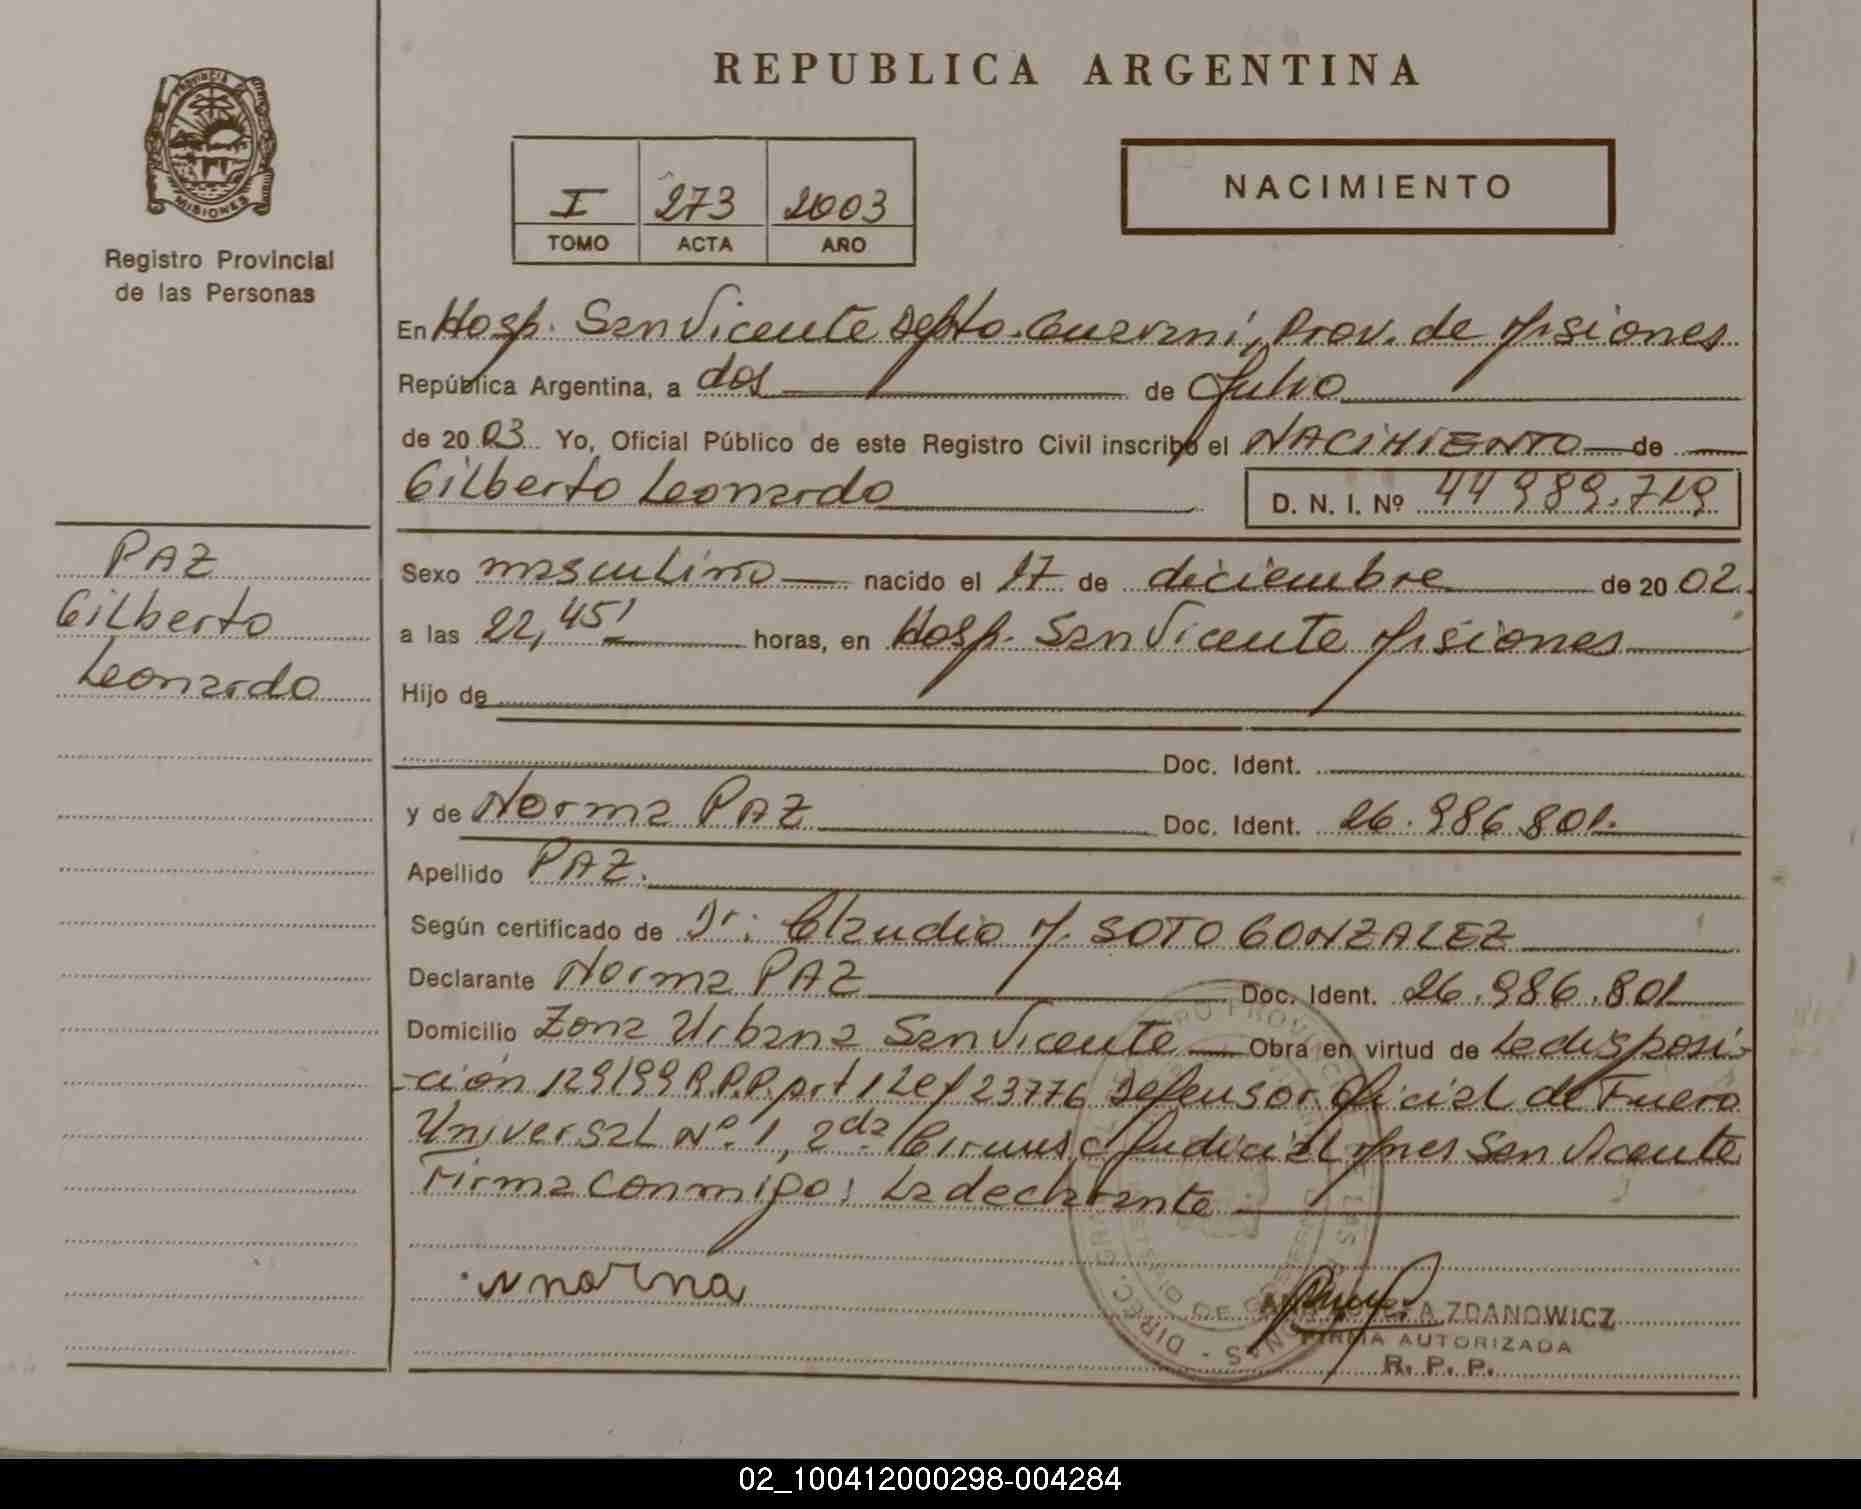 REPUBLICA ARGENTINA
PROVINCIA DE MISIONES
Registro Provincial
de las Personas
I 273 2003
TOMO ACTA AÑO
NACIMIENTO
En Hosp. San Vicente Depto. Guaraní, Prov. de Misiones
República Argentina, a dos de Julio
de 2003 Yo, Oficial Público de este Registro Civil inscribo el NACIMIENTO de
Gilberto Leonardo D. N. I. Nº 44989.719
PAZ
Gilberto
Leonardo
Sexo masculino nacido el 17 de diciembre de 2002
a las 22,45' horas, en Hosp. San Vicente Misiones
Hijo de
Doc. Ident.
y de Norma PAZ Doc. Ident. 26.986.801.
Apellido PAZ.
Según certificado de Dr: Claudio M. SOTO GONZALEZ
Declarante Norma PAZ Doc. Ident. 26.986.801
Domicilio Zona Urbana San Vicente Obra en virtud de La disposi-
-ción 129/99 R.P.P. art 1 Ley 23776 Defensor Oficial de Fuero
Universal Nº 1, 2da Circunsc Judicial Mnes San Vicente
Firma conmigo: La declarante
norma
ZDANOWICZ
FIRMA AUTORIZADA
R. P. P.
02_100412000298-004284